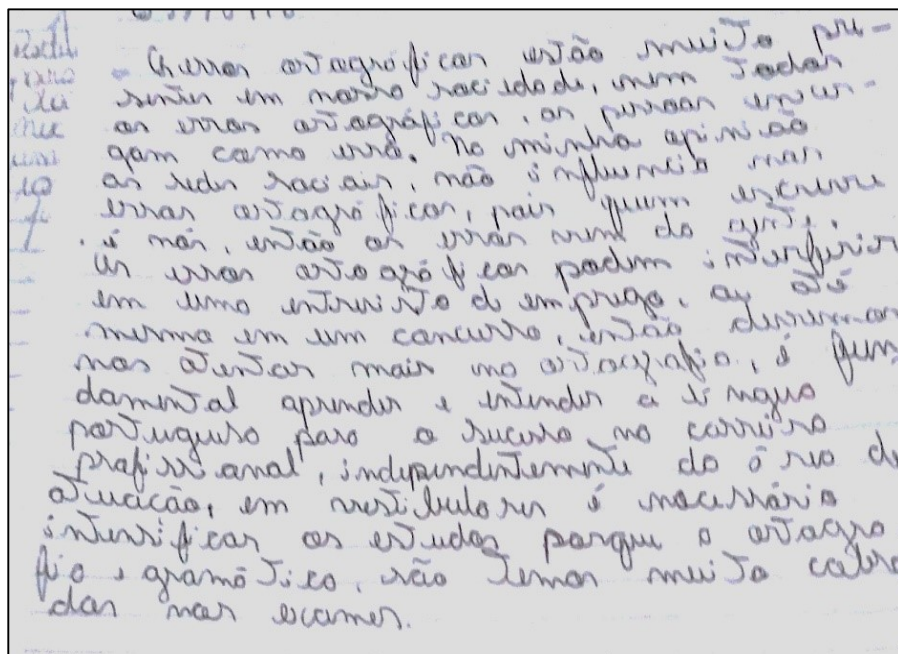 Os erros ortográficos estão muito pre-
sentes em nossa sociedade, nem todos
os erros ortográficos, as pessoas enxer-
gam como erro. Na minha opinião
as redes sociais, não influencia nos
erros ortográficos, pois quem escreve
é nós, então os erros vem da gente.
Os erros ortográficos podem interferir
em uma entrevista de emprego, ou até
mesmo em um concurso, então devemos
nos atentar mais na ortografia, é fun
damental aprender e entender a língua
portuguesa para o sucesso na carreira
profissional, independentemente da área de
atuação, em vestibulares é necessário
intensificar os estudos porque a ortogra
fia e gramática, são temas muito cobra
dos nos exames.